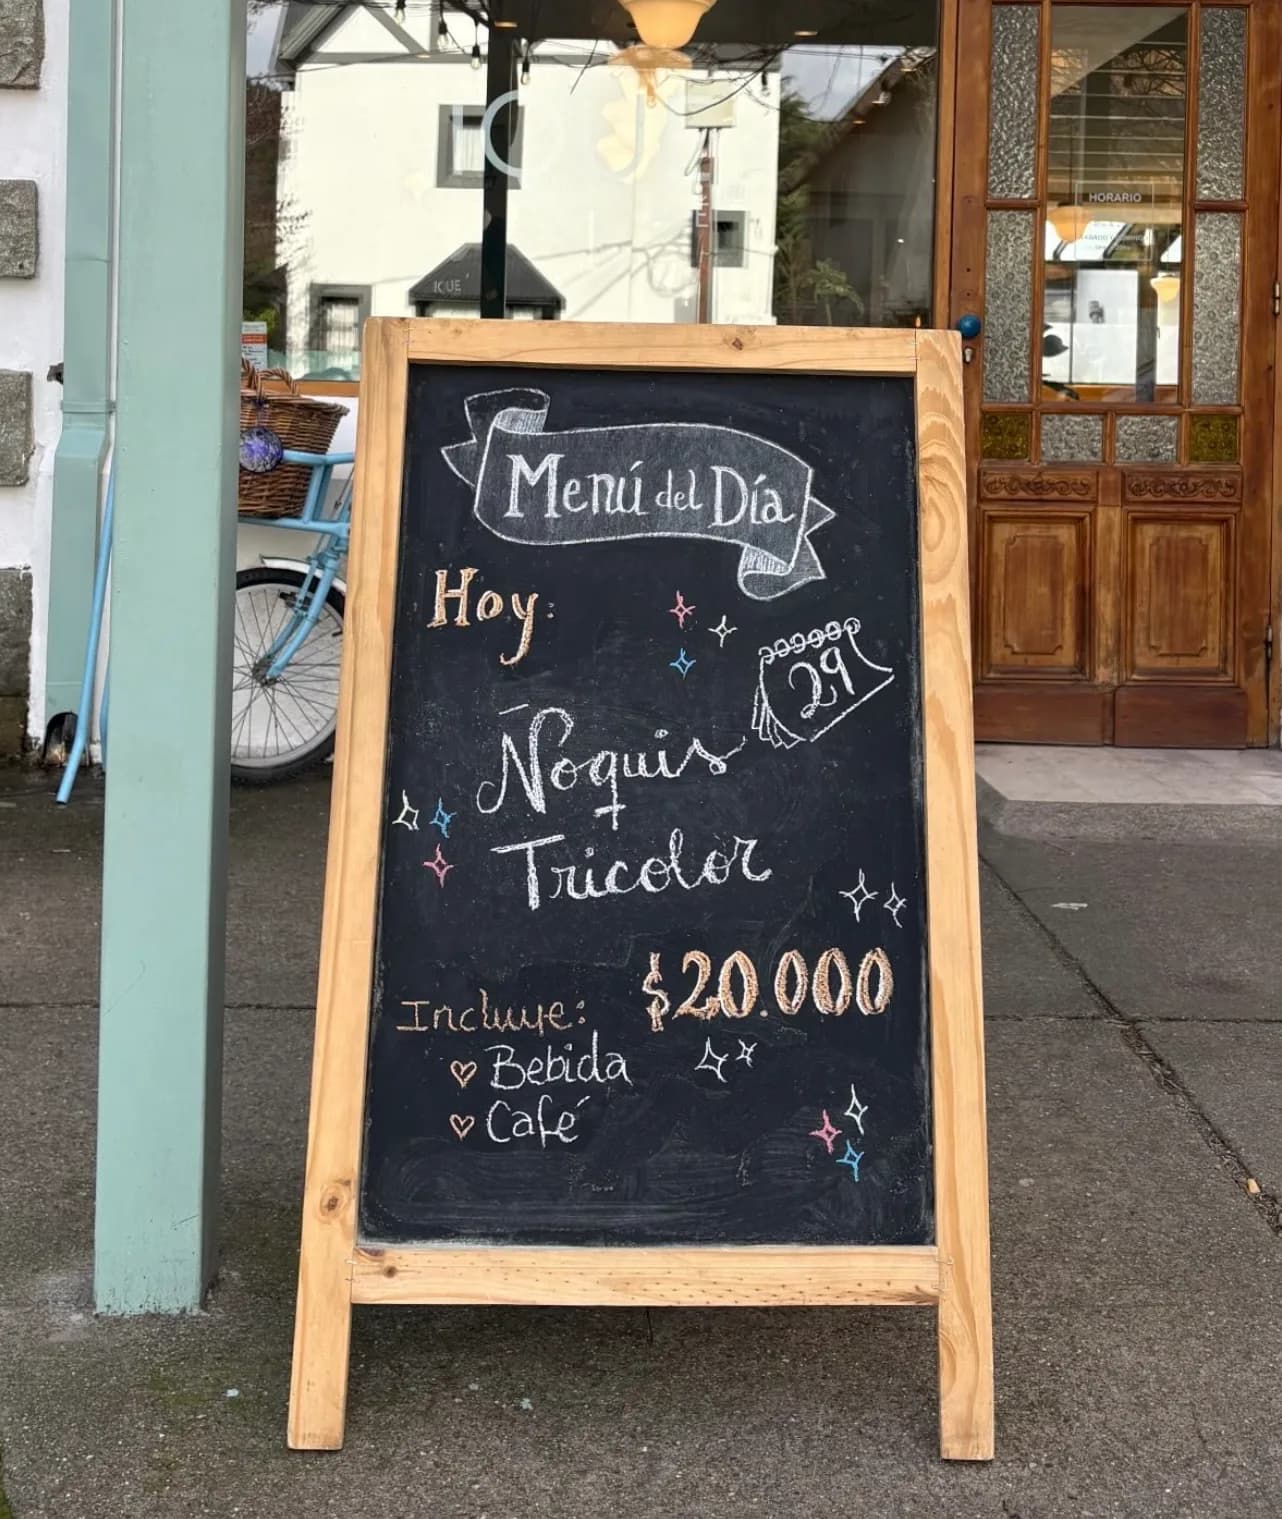 HORARIO
Menú del Día
Hoy:
29
Ñoquis
Tricolor
$20.000
Incluye:
Bebida
Café